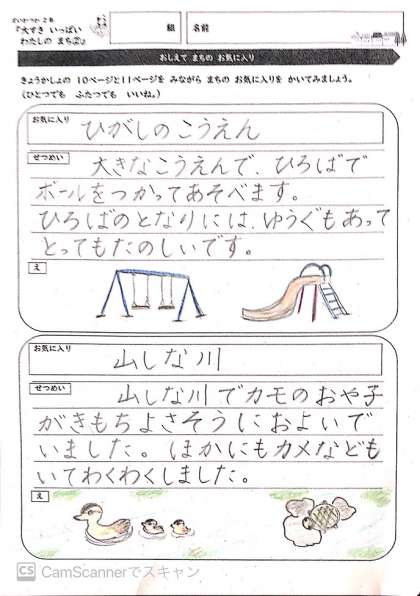 せいかつか 2年
『大すき いっぱい
わたしの まち②』
組
名前
おしえて まちの お気に入り
きょうかしょの 10ページと11ページを みながら まちの お気に入りを かいてみましょう。
(ひとつでも ふたつでも いいね。)
お気に入り
ひがしのこうえん
せつめい
大きなこうえんで、ひろばで
ボールをつかってあそべます。
ひろばのとなりには、ゆうぐもあって
とってもたのしいです。
え
お気に入り
山しな川
せつめい
山しな川でカモのおや子
がきもちよさそうにおよいで
いました。ほかにもカメなども
いてわくわくしました。
え
CS CamScannerでスキャン